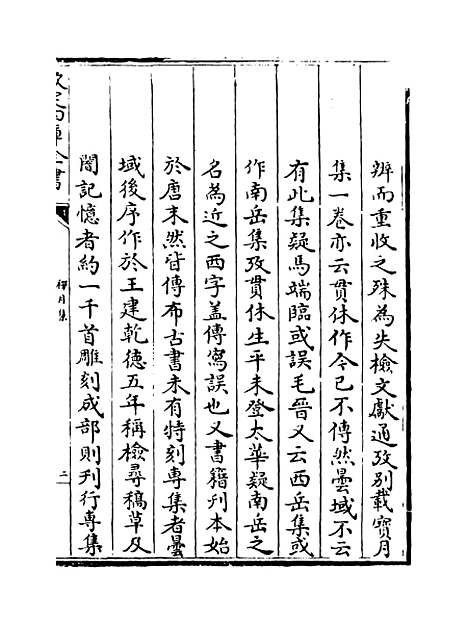 辨而重收之殊為失檢文獻通攷別載寳月
集一卷亦云貫休作今已不傳然曇域不云
有此集疑馬端臨或誤毛晉又云西岳集或
作南岳集攷貫休生平未登太華疑南岳之
名為近之西字蓋傳寫誤也又書籍刊本始
於唐末然皆傳布古書未有特刻專集者曇
域後序作於王建乾德五年稱檢尋稿草及
闇記憶者約一千首雕刻成部則刊行專集
欽定四庫全書
禪月集
二